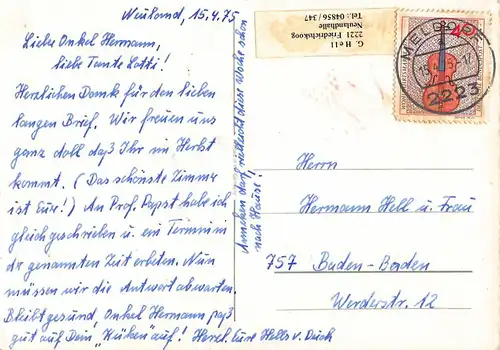 Neuland, 15.4.75
Liebe Onkel Hermann,
liebe Tante Lotti!
Herzlichen Dank für den lieben
langen Brief. Wir freuen uns
ganz doll daß Ihr im Herbst
kommt. (Das schönste Zimmer
ist Eure!) An Prof. Papst habe ich
gleich geschrieben u. ein Termin in
der genannten Zeit erbeten. Nun
müssen wir die Antwort abwarten.
Bleibt gesund, Onkel Hermann paß
gut auf Dein "Küken" auf! Herzl. Eure Hells v. Deich
Annchen darf vielleicht diese Woche schon
nach Hause!
G. Hell
2221 Friedrichskoog
Neulandhalle
Tel.: 04856/347
MELDORF
2223
Herrn
Hermann Hell u. Frau
757 Baden-Baden
Werderstr. 12